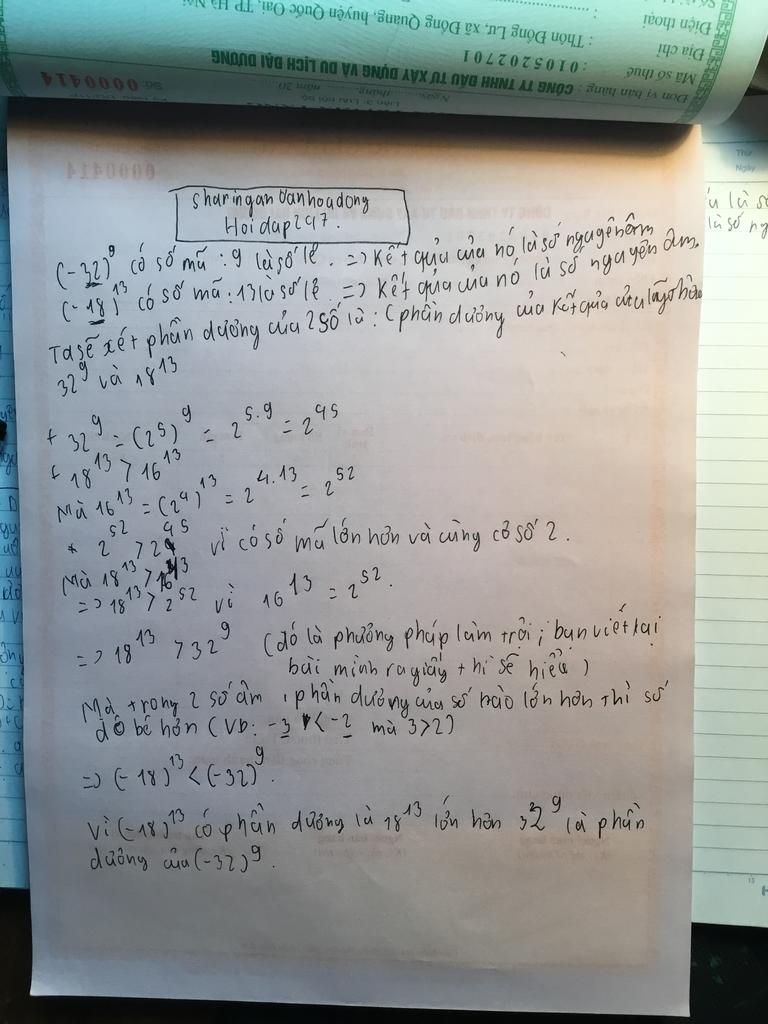 Đơn vị bán hàng : CÔNG TY TNHH ĐẦU TƯ XÂY DỰNG VÀ DU LỊCH ĐẠI DƯƠNG
Mã số thuế : 0105202701
Địa chỉ : Thôn Đông Lư, xã Đông Quang, huyện Quốc Oai, TP Hà Nội
Điện thoại :
Số: 0000414
0000414
sharingan vanhoadong
Hoidap247.
(-32)⁹ có số mũ : 9 là số lẻ. => Kết quả của nó là số nguyên âm
(-18)¹³ có số mũ : 13 là số lẻ => Kết quả của nó là số nguyên âm.
Ta sẽ xét phần dương của 2 số là: (phần dương của kết quả của
32⁹ và 18¹³
+ 32⁹ = (2⁵)⁹ = 2^5.9 = 2⁴⁵
+ 18¹³ > 16¹³
Mà 16¹³ = (2⁴)¹³ = 2^4.13 = 2⁵²
* 2⁵² > 2⁴⁵ vì có số mũ lớn hơn và cùng cơ số 2.
Mà 18¹³ > 16¹³
=> 18¹³ > 2⁵² vì 16¹³ = 2⁵².
=> 18¹³ > 32⁹ (đó là phương pháp làm trội ; bạn viết lại
bài mình ra giấy thì sẽ hiểu)
Mà trong 2 số âm , phần dương của số nào lớn hơn thì số
đó bé hơn (VD: -3 < -2 mà 3 > 2)
=> (-18)¹³ < (-32)⁹.
Vì (-18)¹³ có phần dương là 18¹³ lớn hơn 32⁹ là phần
dương của (-32)⁹.